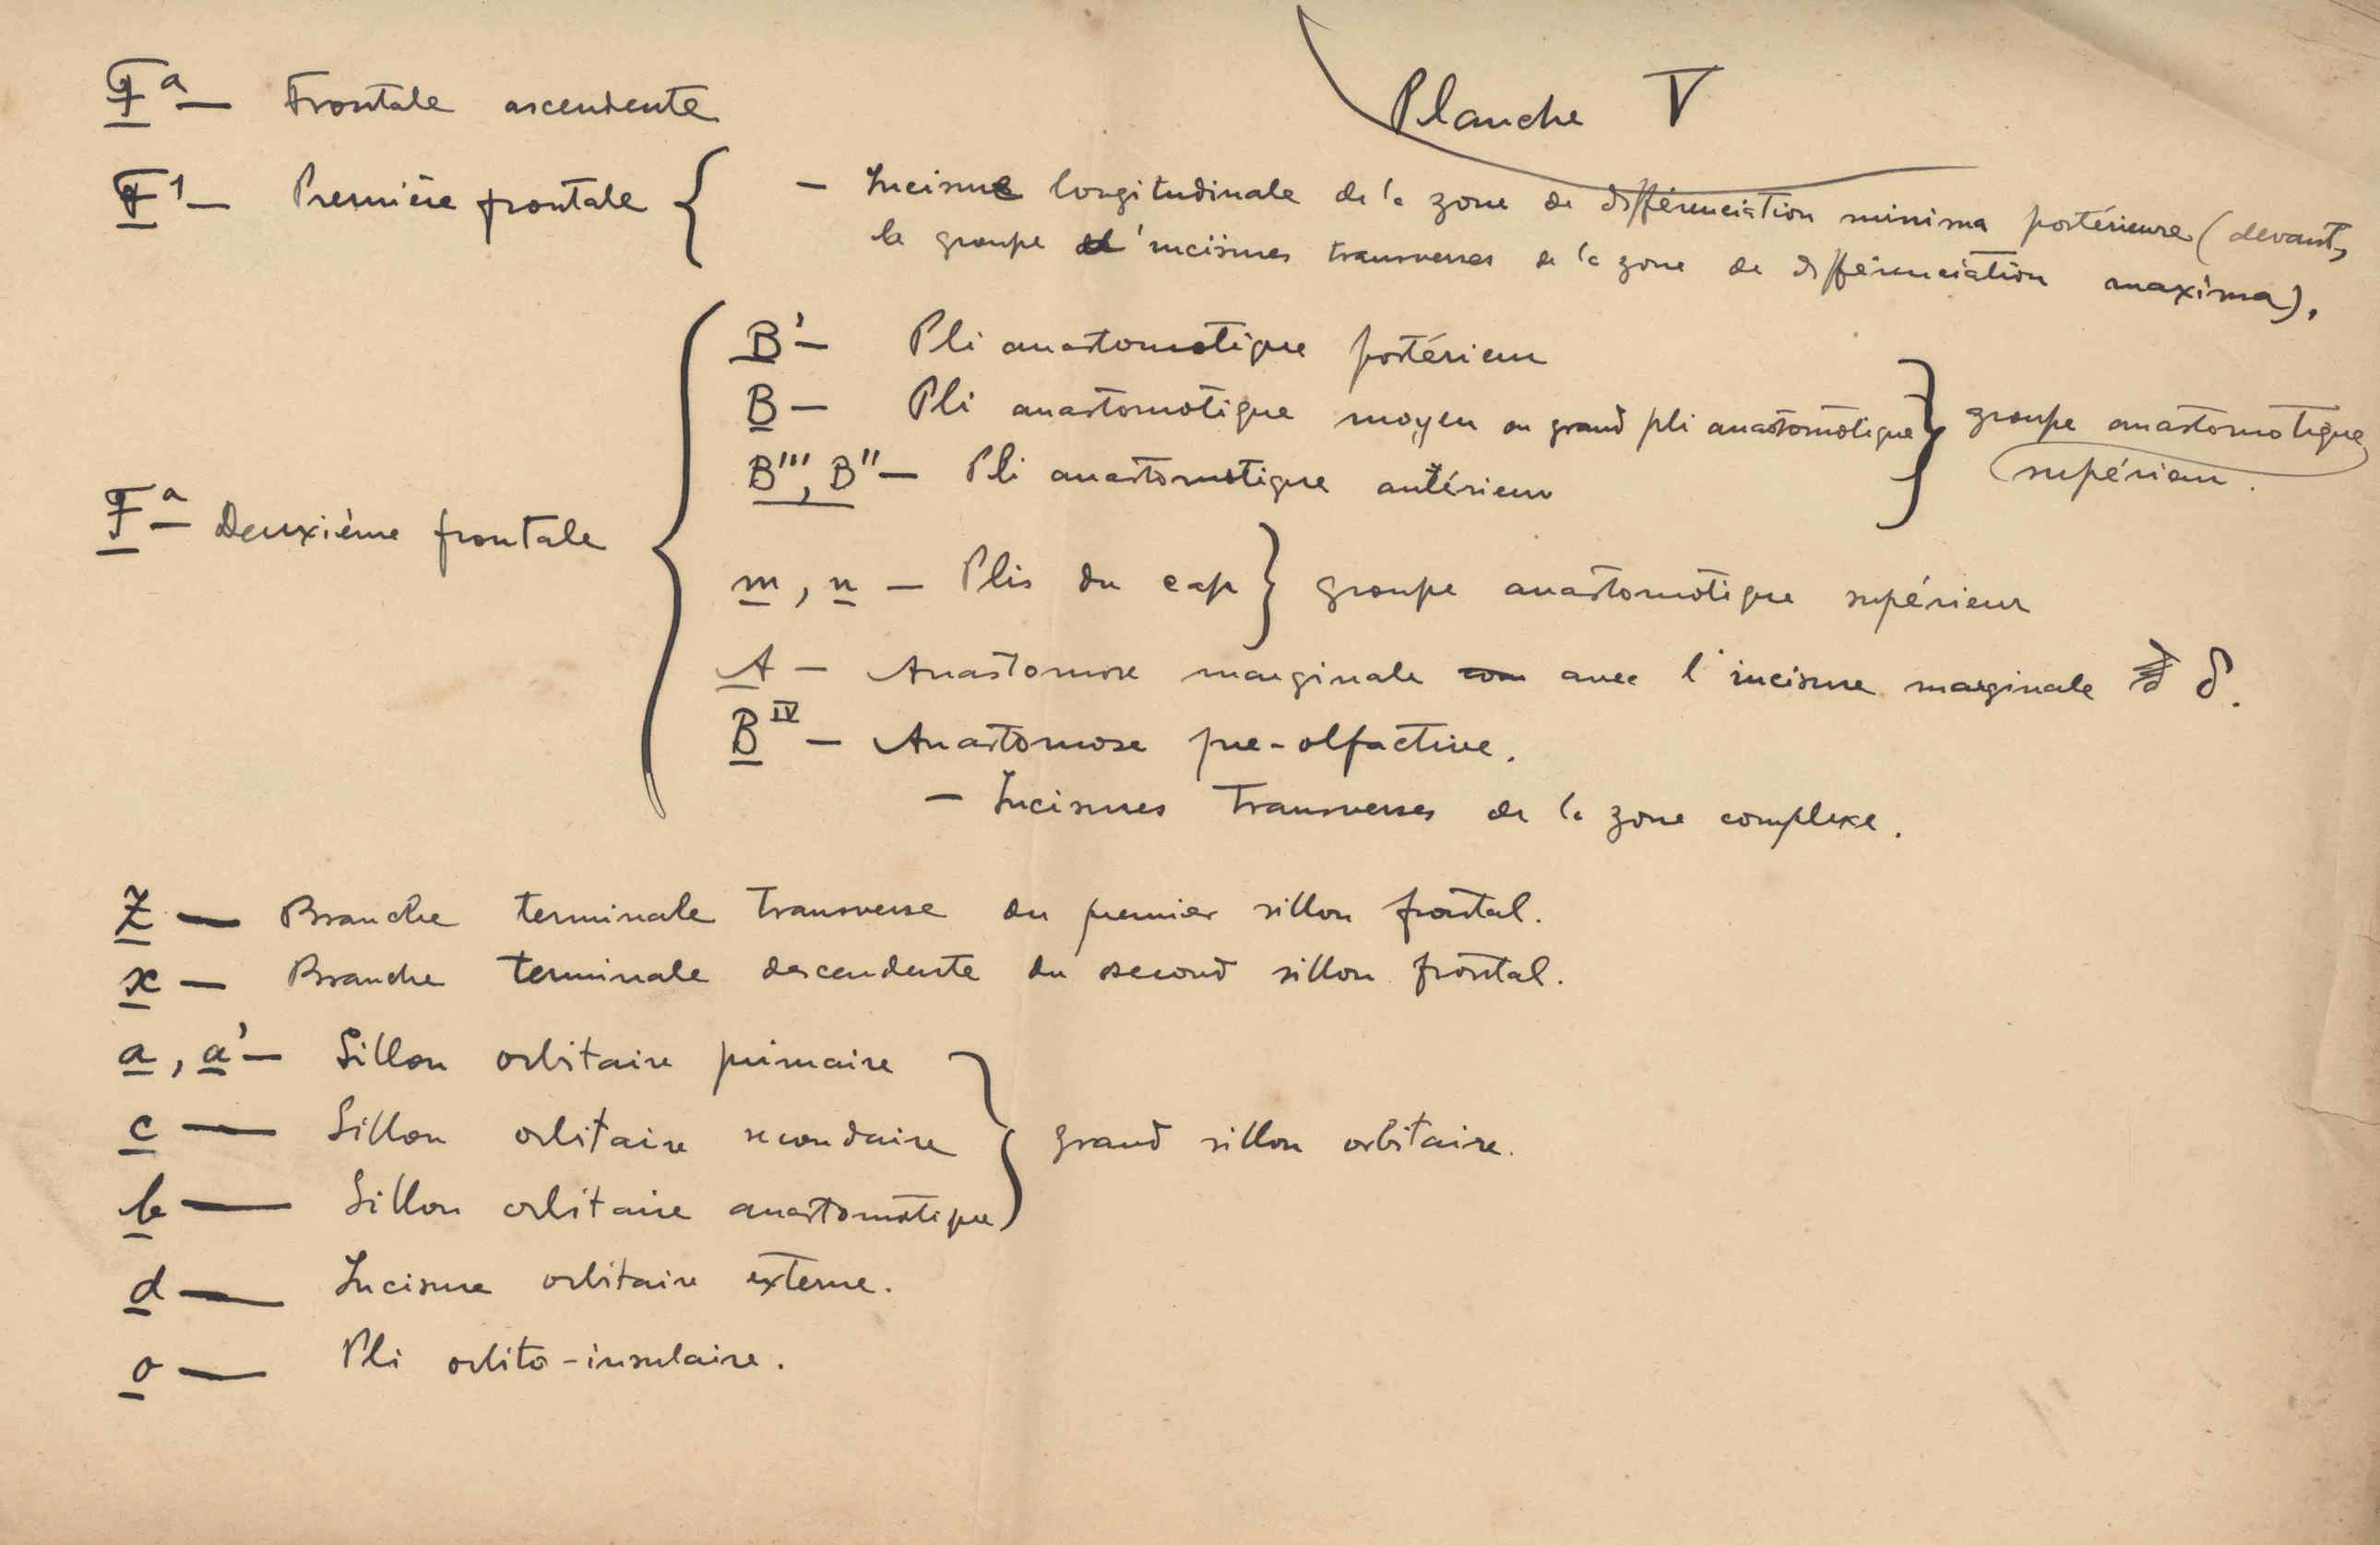 Planche V
Fª — Frontale ascendente
F¹ — Première frontale { — Incisure longitudinale de la zone de différenciation minima postérieure (devant,
le groupe d'incisures transverses de la zone de différenciation maxima).
B' — Pli anastomotique postérieur
B — Pli anastomotique moyen ou grand pli anastomotique } groupe anastomotique
supérieur.
B''', B'' — Pli anastomotique antérieur
Fª — Deuxième frontale {
m, n — Plis du cap } groupe anastomotique supérieur
A — Anastomose marginale avec l'incisure marginale δ.
B^IV — Anastomose pre-olfactive.
— Incisures transverses de la zone complexe.
Z — Branche terminale transverse du premier sillon frontal.
x — Branche terminale descendente du second sillon frontal.
a, a' — Sillon orbitaire primaire
c — Sillon orbitaire secondaire } grand sillon orbitaire.
b — Sillon orbitaire anastomotique
d — Incisure orbitaire externe.
o — Pli orbito-insulaire.